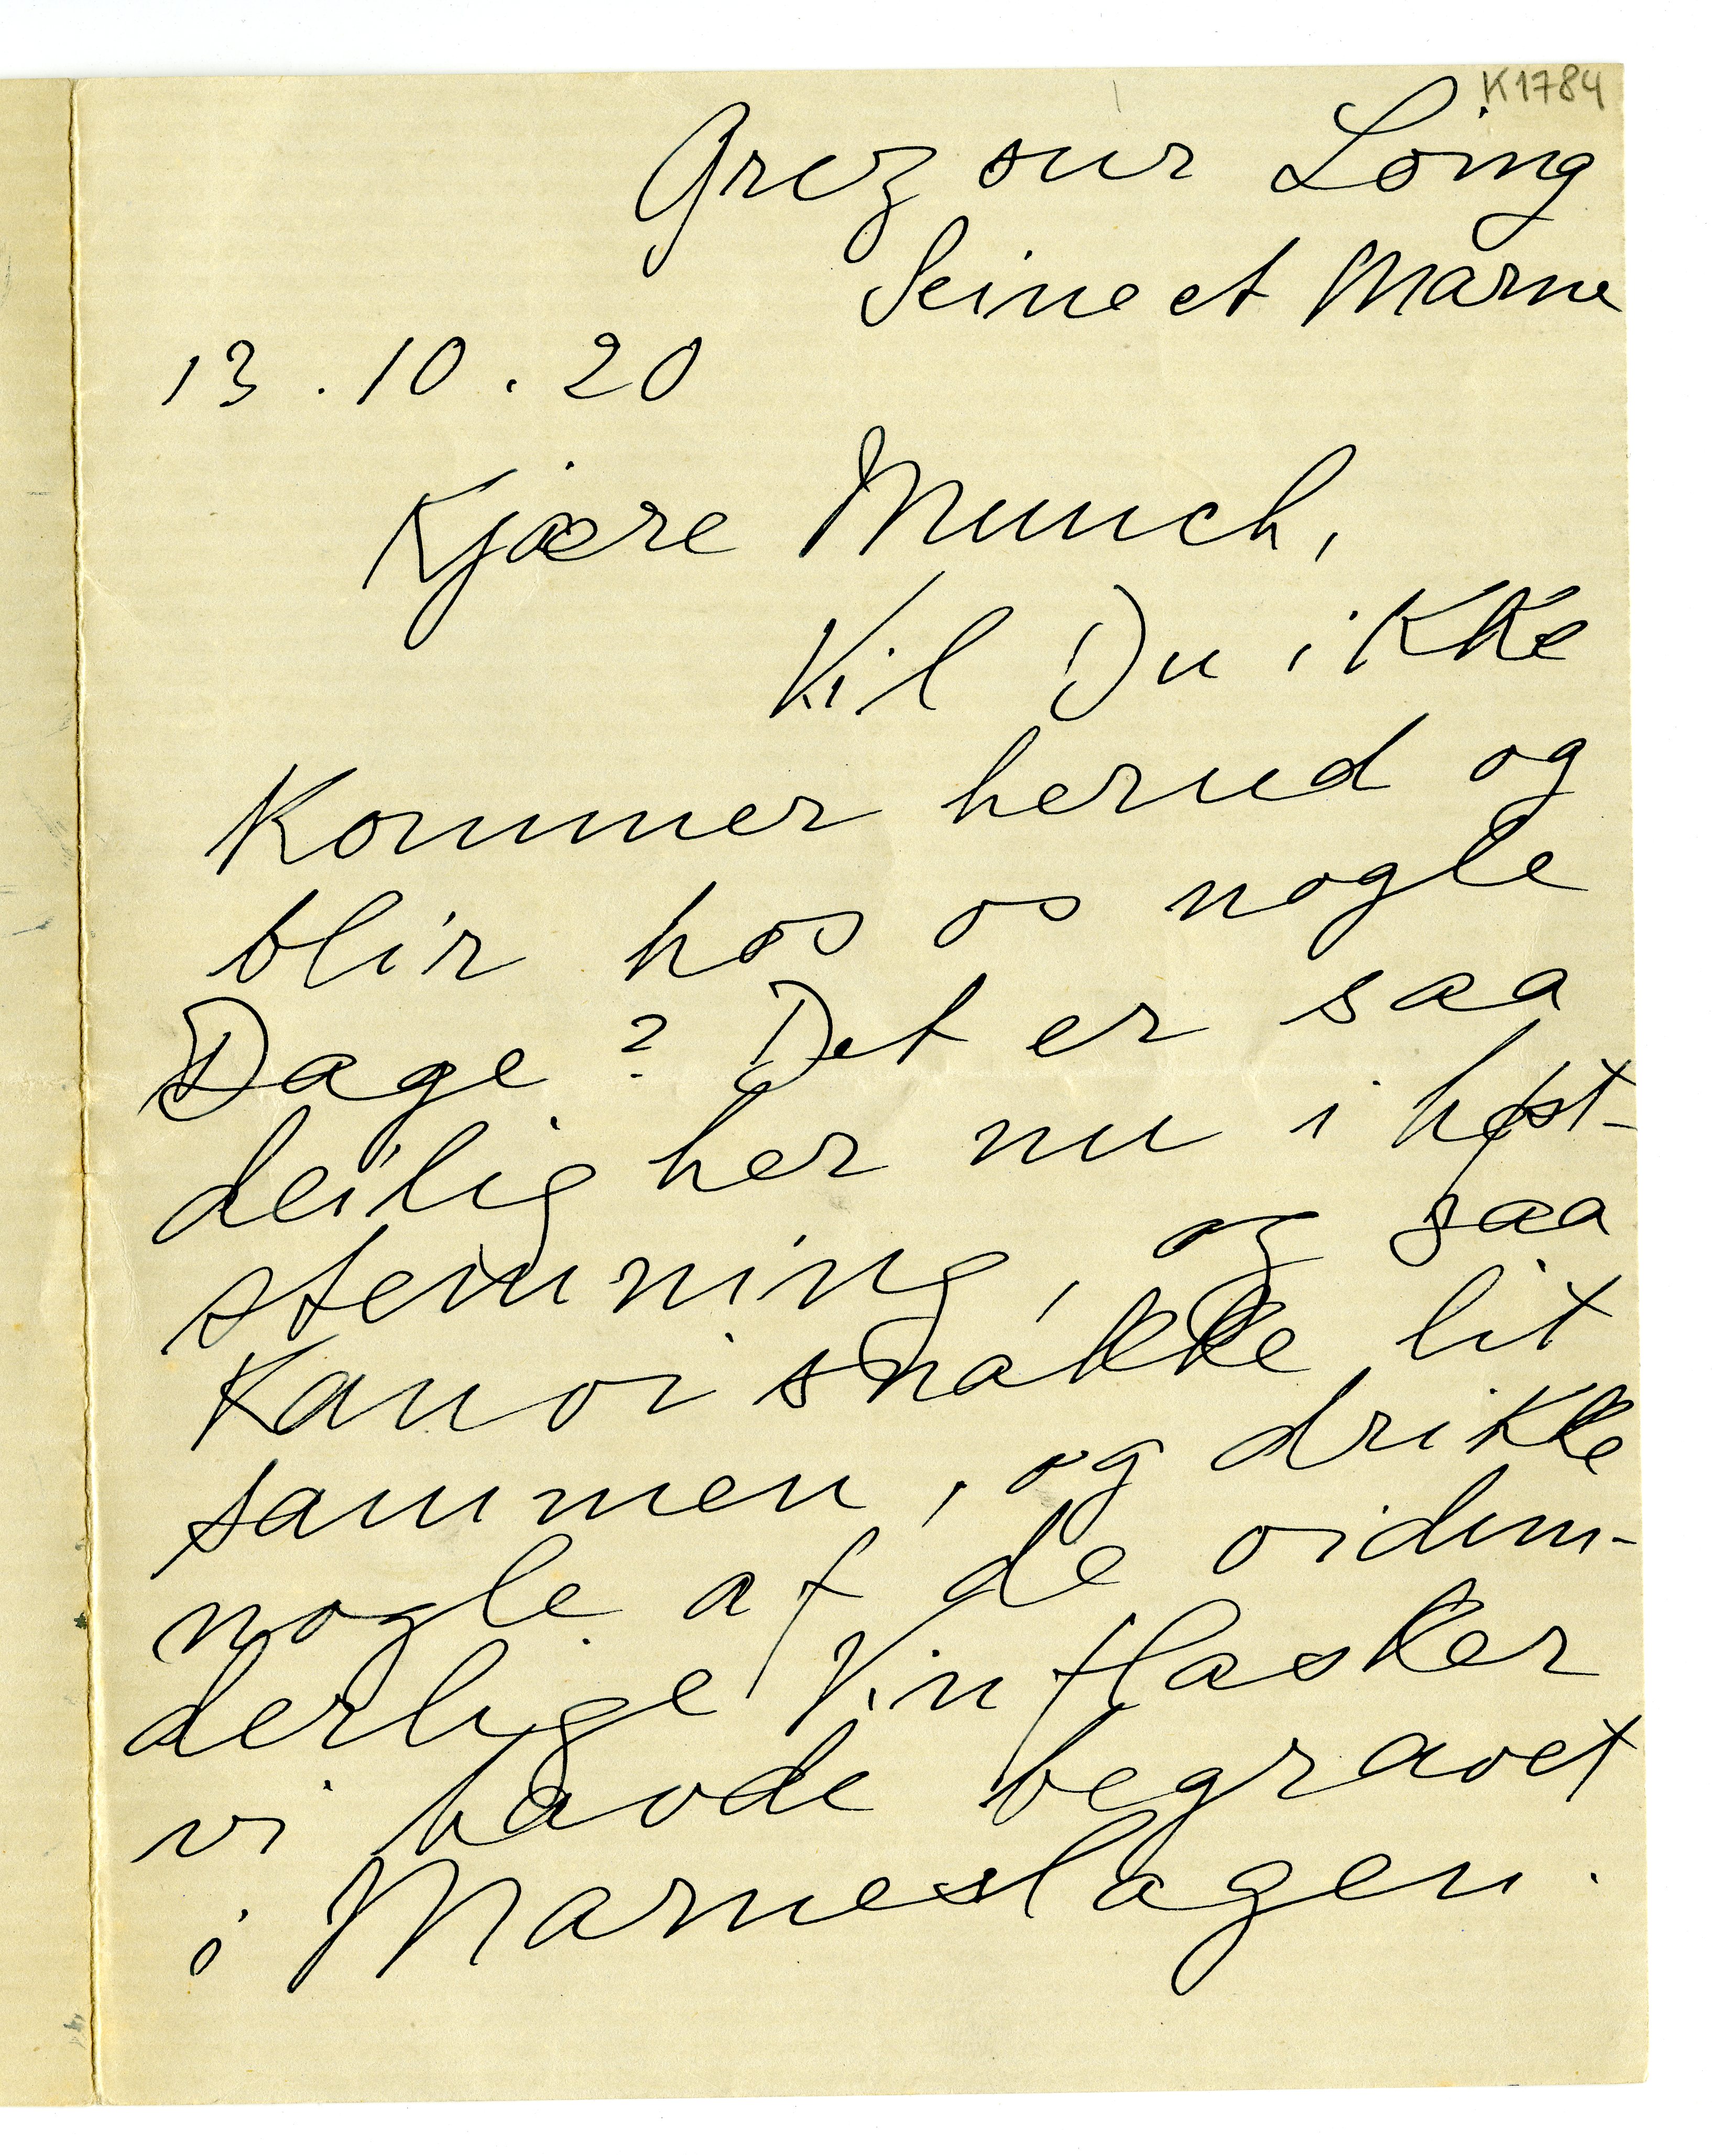 K1784
Grez sur Loing
Seine et Marne
13.10.20
Kjære Munch,
Vil Du ikke
Kommer herud og
blir hos os nogle
Dage? Det er saa
deilig her nu i høst-
stemning, og saa
Kan vi snakke lit
sammen, og drikke
nogle af de vidun-
derlige Vinflasker
vi havde begravet
i Marneslagen.